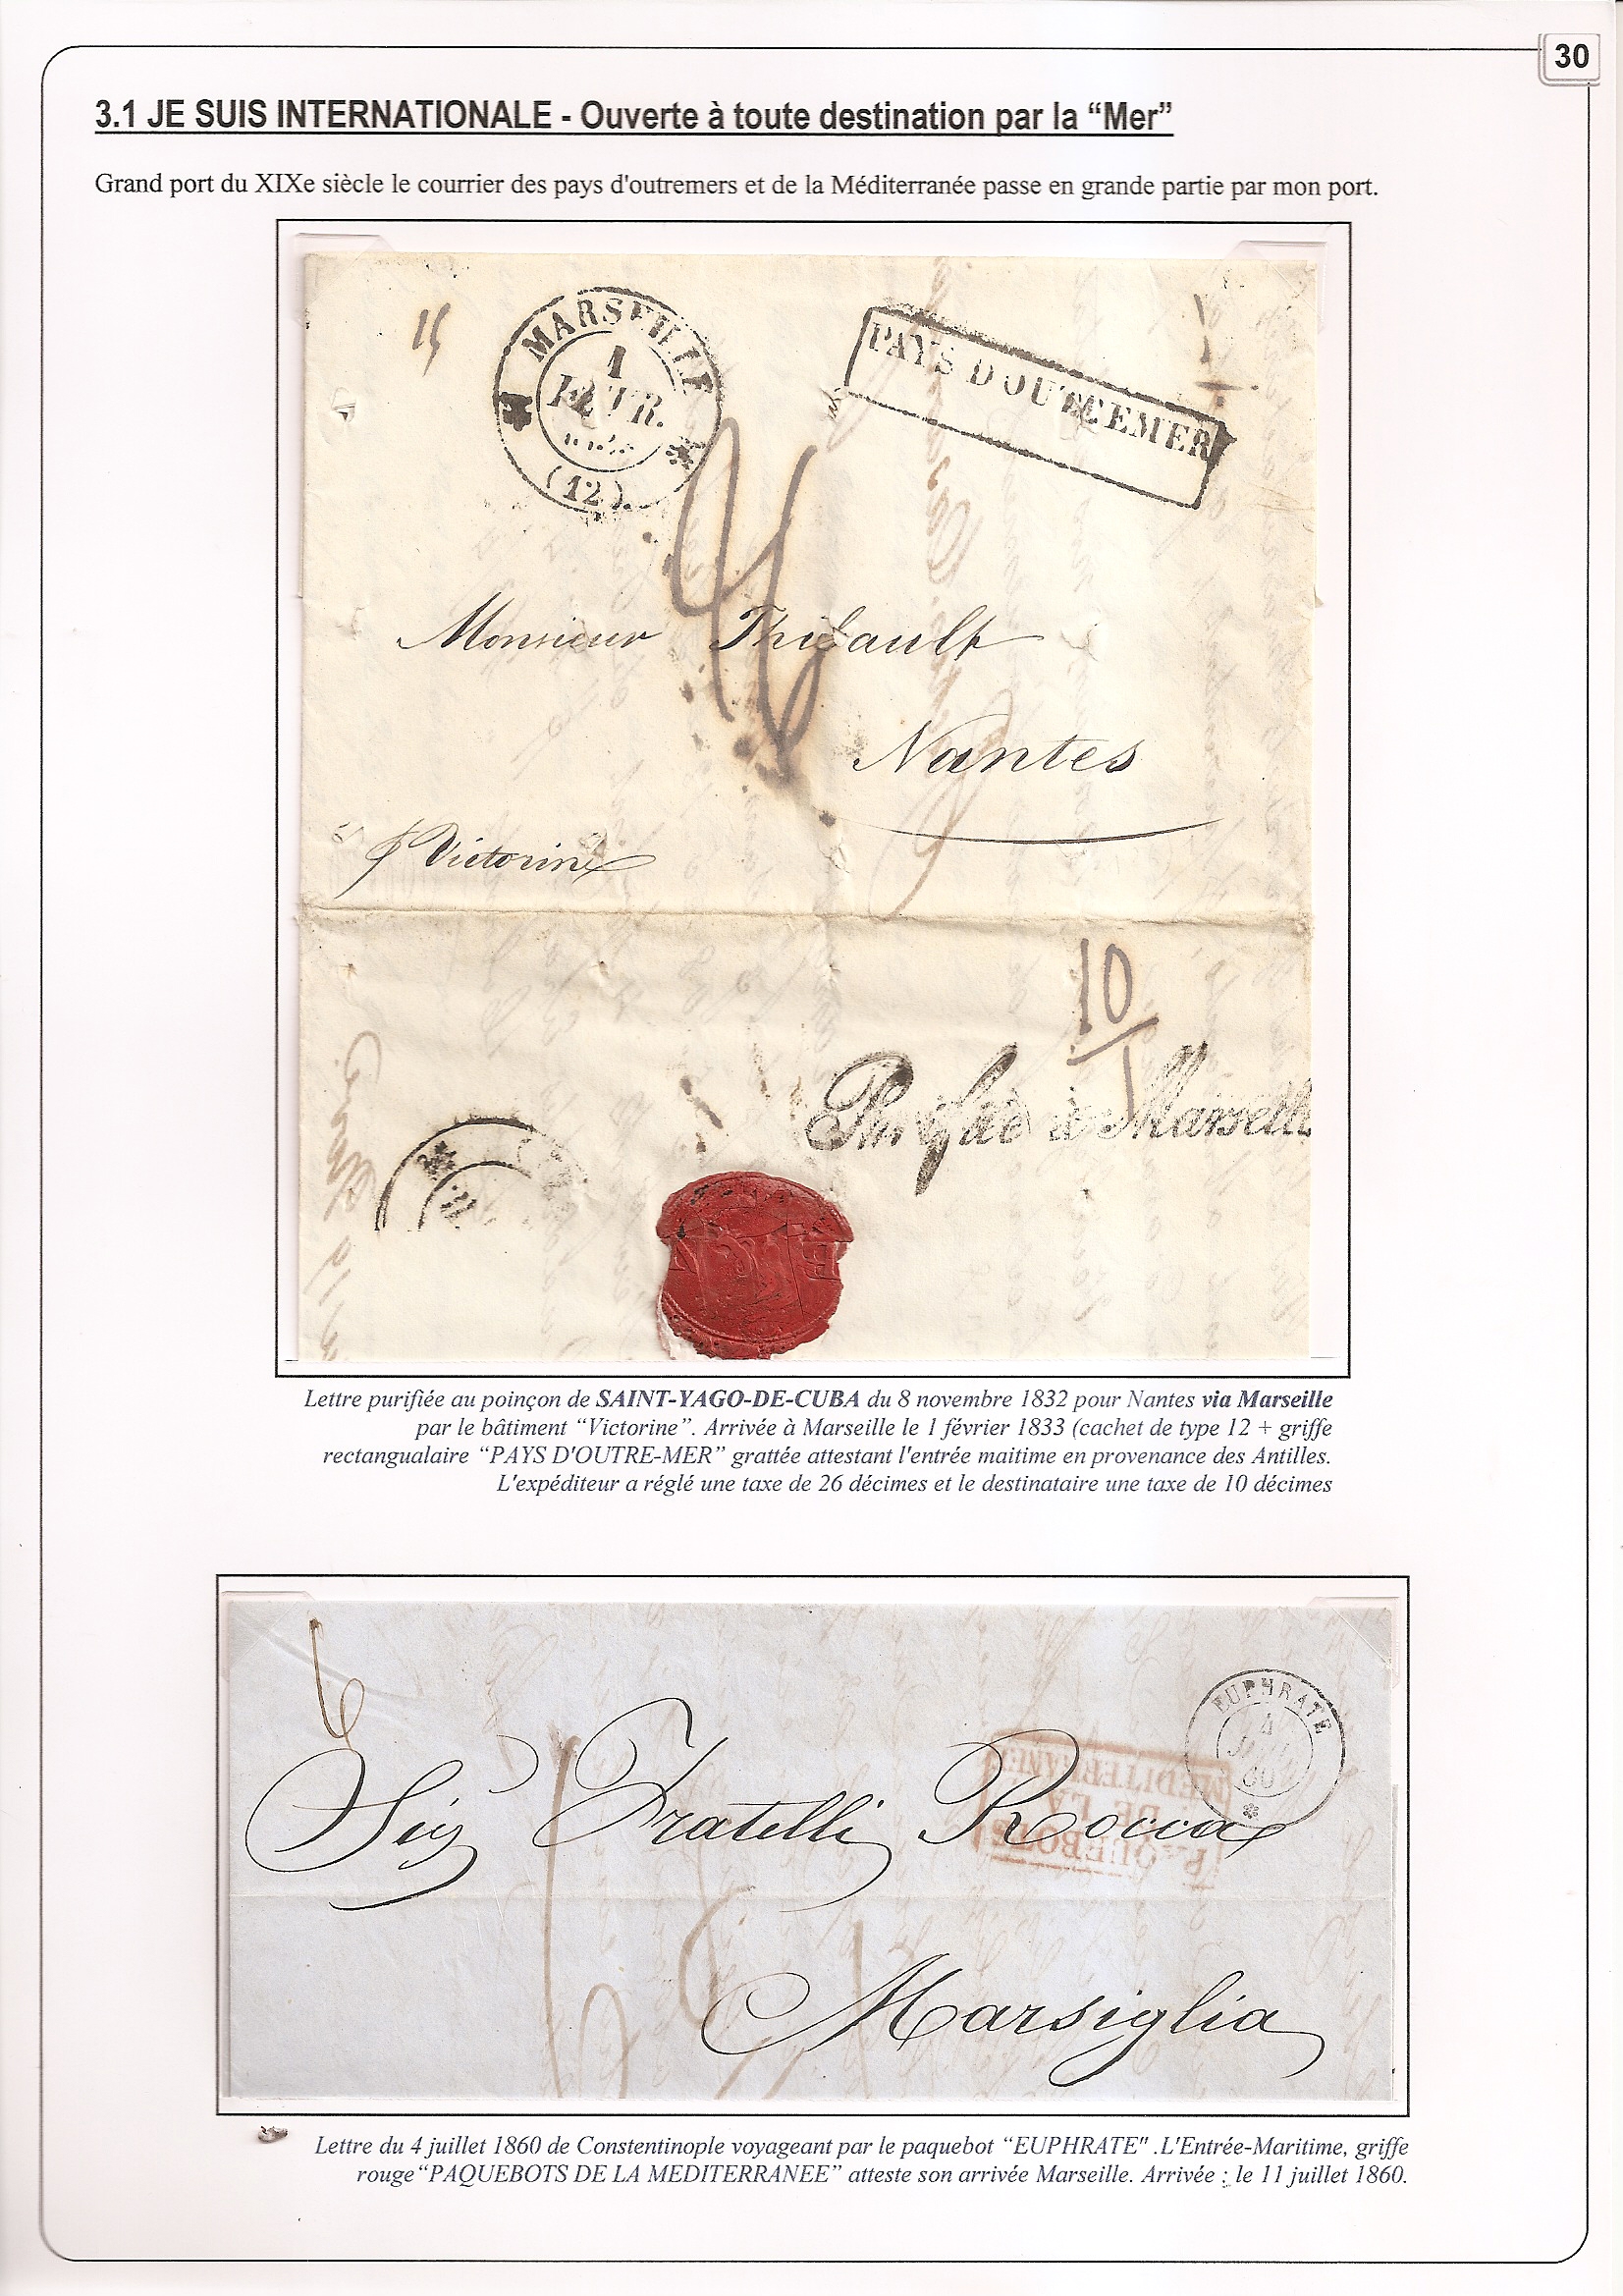 30
3.1 JE SUIS INTERNATIONALE - Ouverte à toute destination par la “Mer”
Grand port du XIXe siècle le courrier des pays d'outremers et de la Méditerranée passe en grande partie par mon port.
15
MARSEILLE
1
FEVR.
(12)
PAYS D'OUTREMER
Monsieur Thibault
Nantes
p Victorine
10
1
Purifié à Marseille
Lettre purifiée au poinçon de SAINT-YAGO-DE-CUBA du 8 novembre 1832 pour Nantes via Marseille
par le bâtiment “Victorine”. Arrivée à Marseille le 1 février 1833 (cachet de type 12 + griffe
rectangualaire “PAYS D'OUTRE-MER” grattée attestant l'entrée maitime en provenance des Antilles.
L'expéditeur a réglé une taxe de 26 décimes et le destinataire une taxe de 10 décimes
EUPHRATE
4
JUIL
60
PAQUEBOTS
DE LA
MEDITERRANEE
Sig Fratelli Rocca
Marsiglia
Lettre du 4 juillet 1860 de Constentinople voyageant par le paquebot “EUPHRATE" .L'Entrée-Maritime, griffe
rouge “PAQUEBOTS DE LA MEDITERRANEE” atteste son arrivée Marseille. Arrivée : le 11 juillet 1860.